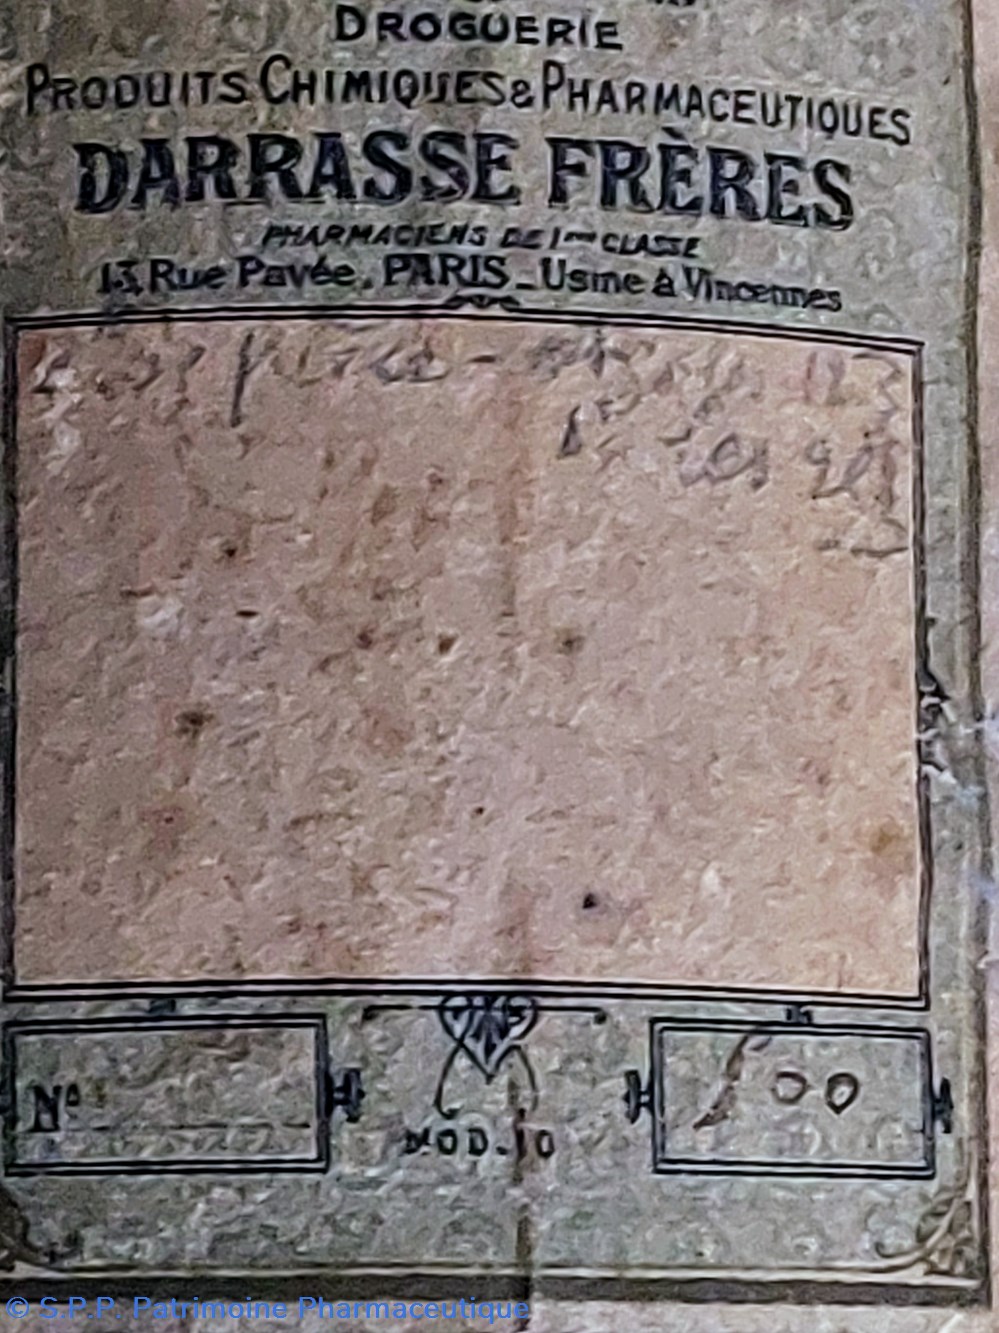 DROGUERIE
PRODUITS CHIMIQUES & PHARMACEUTIQUES
DARRASSE FRÈRES
PHARMACIENS DE 1ère CLASSE
13, Rue Pavée, PARIS - Usine à Vincennes
Nº
500
MOD. 10
© S.P.P. Patrimoine Pharmaceutique